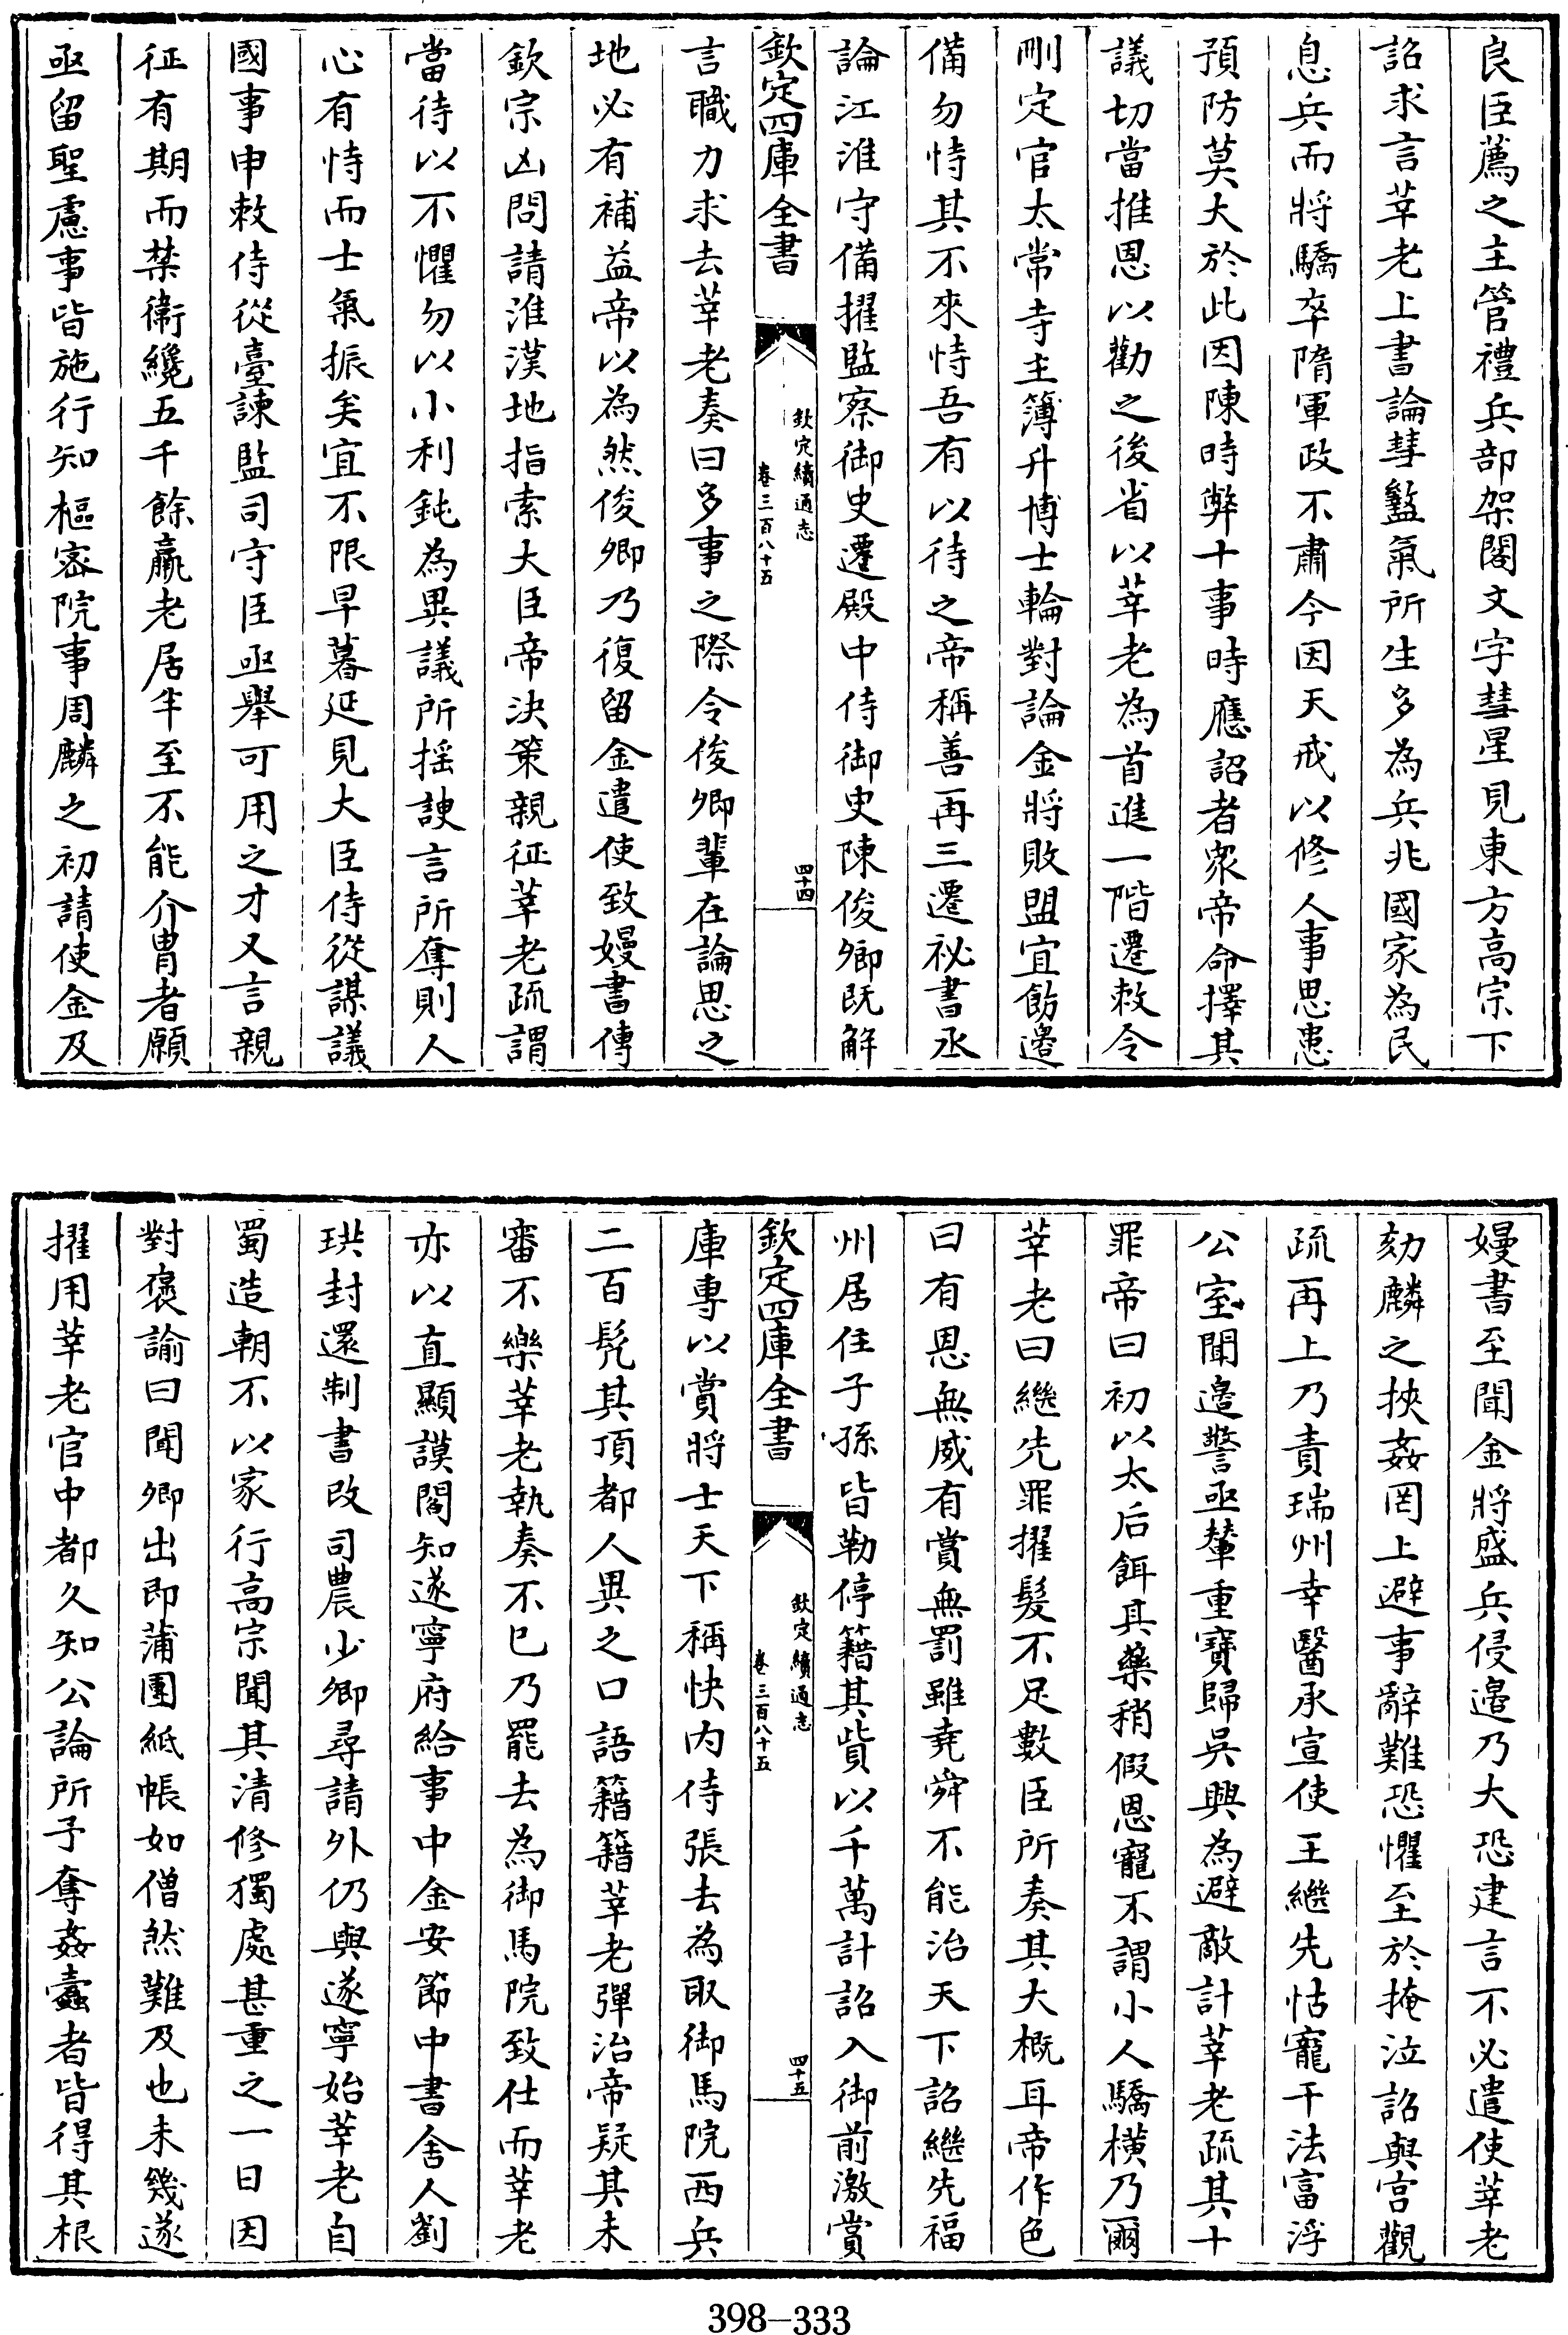 良臣薦之主管禮兵部架閣文字彗星見東方高宗下
詔求言莘老上書論彗盭氣所生多為兵兆國家為民
息兵而將驕卒隋軍政不肅今因天戒以修人事思患
預防莫大於此因陳時弊十事時應詔者衆帝命擇其
議切當推恩以勸之後省以莘老為首進一階遷敕令
刪定官太常寺主簿升博士輪對論金將敗盟宜飭邊
備勿恃其不來恃吾有以待之帝稱善再三遷祕書丞
論江淮守備擢監察御史遷殿中侍御史陳俊卿既解
欽定四庫全書
欽定續通志
卷三百八十五
四十四
言職力求去莘老奏曰多事之際令俊卿輩在論思之
地必有補益帝以為然俊卿乃復留金遣使致嫚書傳
欽宗凶問請淮漢地指索大臣帝決策親征莘老疏謂
當待以不懼勿以小利鈍為異議所揺諛言所奪則人
心有恃而士氣振矣宜不限早暮延見大臣侍從謀議
國事申敕侍從臺諫監司守臣亟舉可用之才又言親
征有期而禁衞纔五千餘羸老居半至不能介胄者願
亟留聖慮事皆施行知樞密院事周麟之初請使金及
嫚書至聞金將盛兵侵邊乃大恐建言不必遣使莘老
劾麟之挾姦罔上避事辭難恐懼至於掩泣詔與宫觀
疏再上乃責瑞州幸醫承宣使王繼先怙寵干法富浮
公室聞邊警亟輦重寶歸吳興為避敵計莘老疏其十
罪帝曰初以太后餌其藥稍假恩寵不謂小人驕横乃爾
莘老曰繼先罪擢髮不足數臣所奏其大概耳帝作色
曰有恩無威有賞無罰雖堯舜不能治天下詔繼先福
州居住子孫皆勒停籍其貲以千萬計詔入御前激賞
欽定四庫全書
欽定續通志
卷三百八十五
四十五
庫專以賞將士天下稱快内侍張去為取御馬院西兵
二百髠其頂都人異之口語籍籍莘老彈治帝疑其未
審不樂莘老執奏不已乃罷去為御馬院致仕而莘老
亦以直顯謨閣知遂寧府給事中金安節中書舍人劉
珙封還制書改司農少卿尋請外仍與遂寧始莘老自
蜀造朝不以家行高宗聞其清修獨處甚重之一日因
對褒諭曰聞卿出即蒲團紙帳如僧然難及也未幾遂
擢用莘老官中都久知公論所予奪姦蠹者皆得其根
398—333